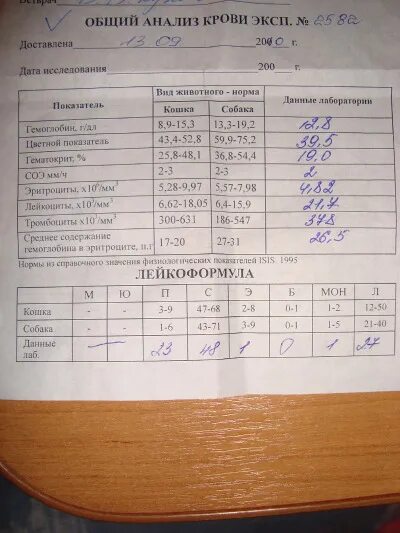 Ветврач
✓ ОБЩИЙ АНАЛИЗ КРОВИ ЭКСП. № 2582
Доставлена 13 09 2000 г.
Дата исследования 200 г.
Показатель Вид животного - норма Данные лаборатории
Кошка Собака
Гемоглобин, г/дл 8,9-15,3 13,3-19,2 12,8
Цветной показатель 43,4-52,8 59,9-75,2 39,5
Гематокрит, % 25,8-48,1 36,8-54,4 19,0
СОЭ мм/ч 2-3 2-3 2
Эритроциты, х10⁶/мм³ 5,28-9,97 5,57-7,98 4,82
Лейкоциты, х10³/мм³ 6,62-18,05 6,4-15,9 21,7
Тромбоциты х10³/мм³ 300-631 186-547 378
Среднее содержание
гемоглобина в эритроците, п.г 17-20 27-31 26,5
Нормы из справочного значения физиологических показателей ISIS 1995
ЛЕЙКОФОРМУЛА
М Ю П С Э Б МОН Л
Кошка - - 3-9 47-68 2-8 0-1 1-2 12-50
Собака - - 1-6 43-71 3-9 0-1 1-5 21-40
Данные
лаб. — 23 48 1 0 1 27